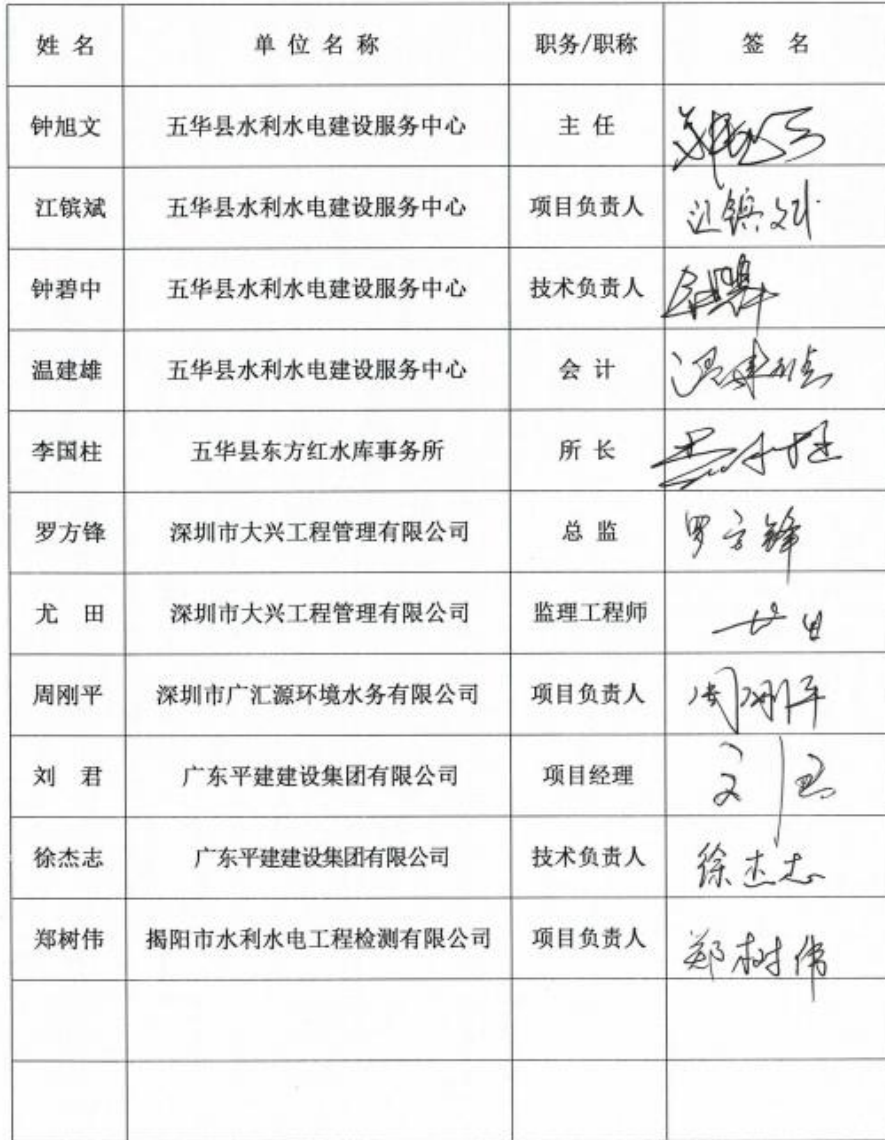 姓 名 单 位 名 称 职务/职称 签 名
钟旭文 五华县水利水电建设服务中心 主 任
江镔斌 五华县水利水电建设服务中心 项目负责人 江镔斌
钟碧中 五华县水利水电建设服务中心 技术负责人
温建雄 五华县水利水电建设服务中心 会 计 温建雄
李国柱 五华县东方红水库事务所 所 长
罗方锋 深圳市大兴工程管理有限公司 总 监 罗方锋
尤 田 深圳市大兴工程管理有限公司 监理工程师
周刚平 深圳市广汇源环境水务有限公司 项目负责人 周刚平
刘 君 广东平建建设集团有限公司 项目经理 刘君
徐杰志 广东平建建设集团有限公司 技术负责人 徐杰志
郑树伟 揭阳市水利水电工程检测有限公司 项目负责人 郑树伟